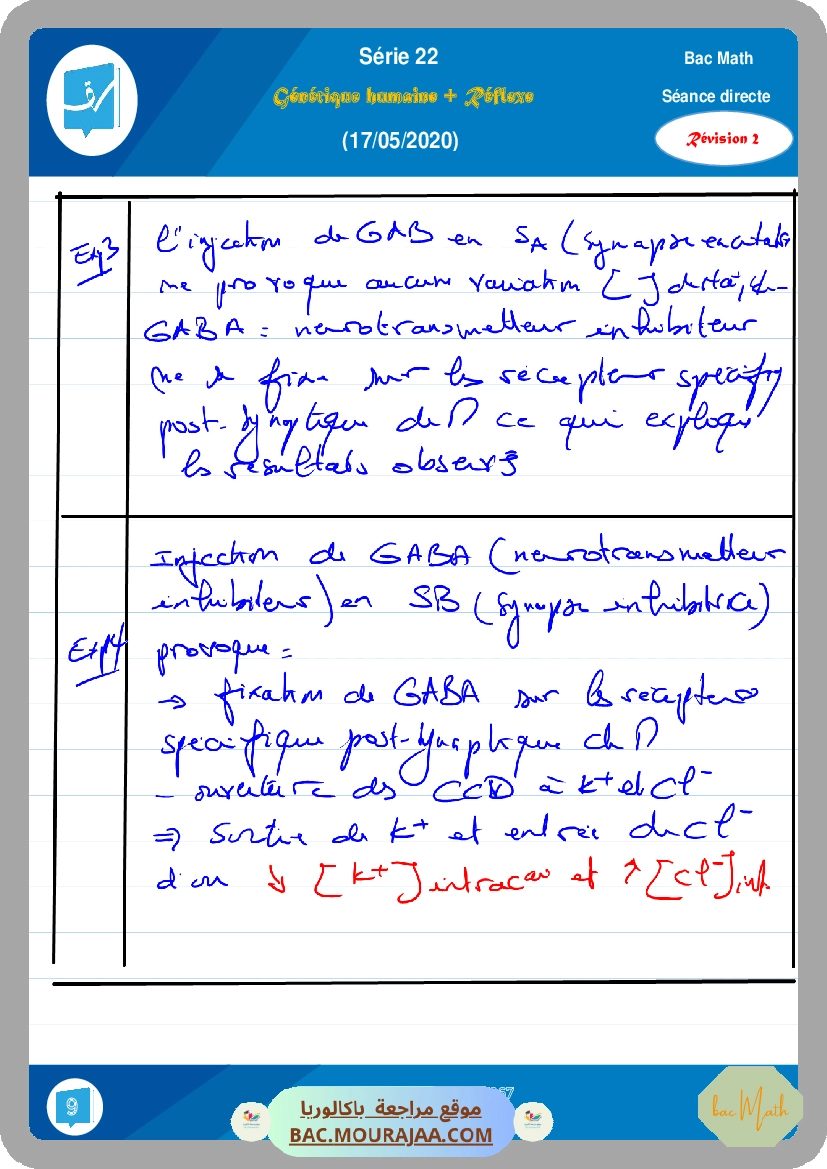 Série 22
Bac Math
Génétique humaine + Réflexe
Séance directe
(17/05/2020)
Révision 2
Exp3
l'injection de GAB en SA (synapse excitatr
ne provoque aucune variation [ ] des
GABA = neurotransmetteur inhibiteur
ne se fixe sur les récepteurs spécifiq
post-synaptique de N ce qui explique
les résultats observés
Injection de GABA (neurotransmetteur
inhibiteur) en SB (synapse inhibitrice)
Exp4
provoque =
→ fixation de GABA sur les récepteurs
spécifique post-synaptique de N
- ouverture des CCD à K⁺ et Cl⁻
⇒ Sortie de K⁺ et entrée de Cl⁻
d'où ↓ [K⁺] intrac et ↑ [Cl⁻] int
9
موقع مراجعة باكالوريا
BAC.MOURAJAA.COM
bac Math